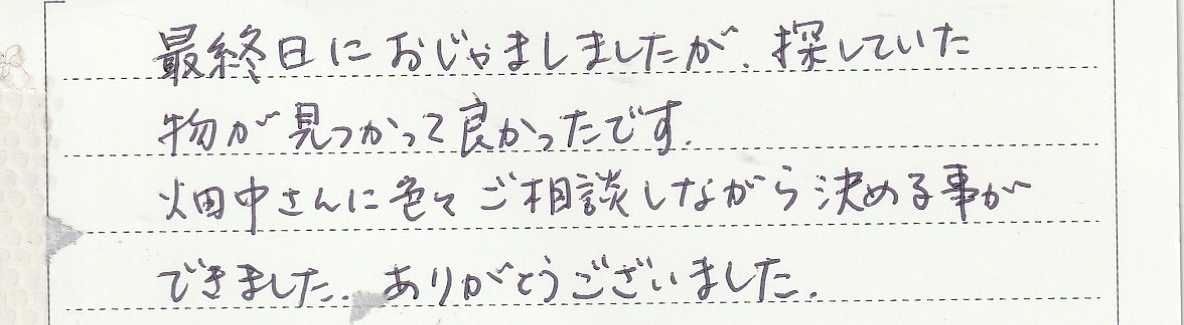 最終日におじゃましましたが、探していた
物が見つかって良かったです.
畑中さんに色々ご相談しながら決める事が
できました. ありがとうございました.